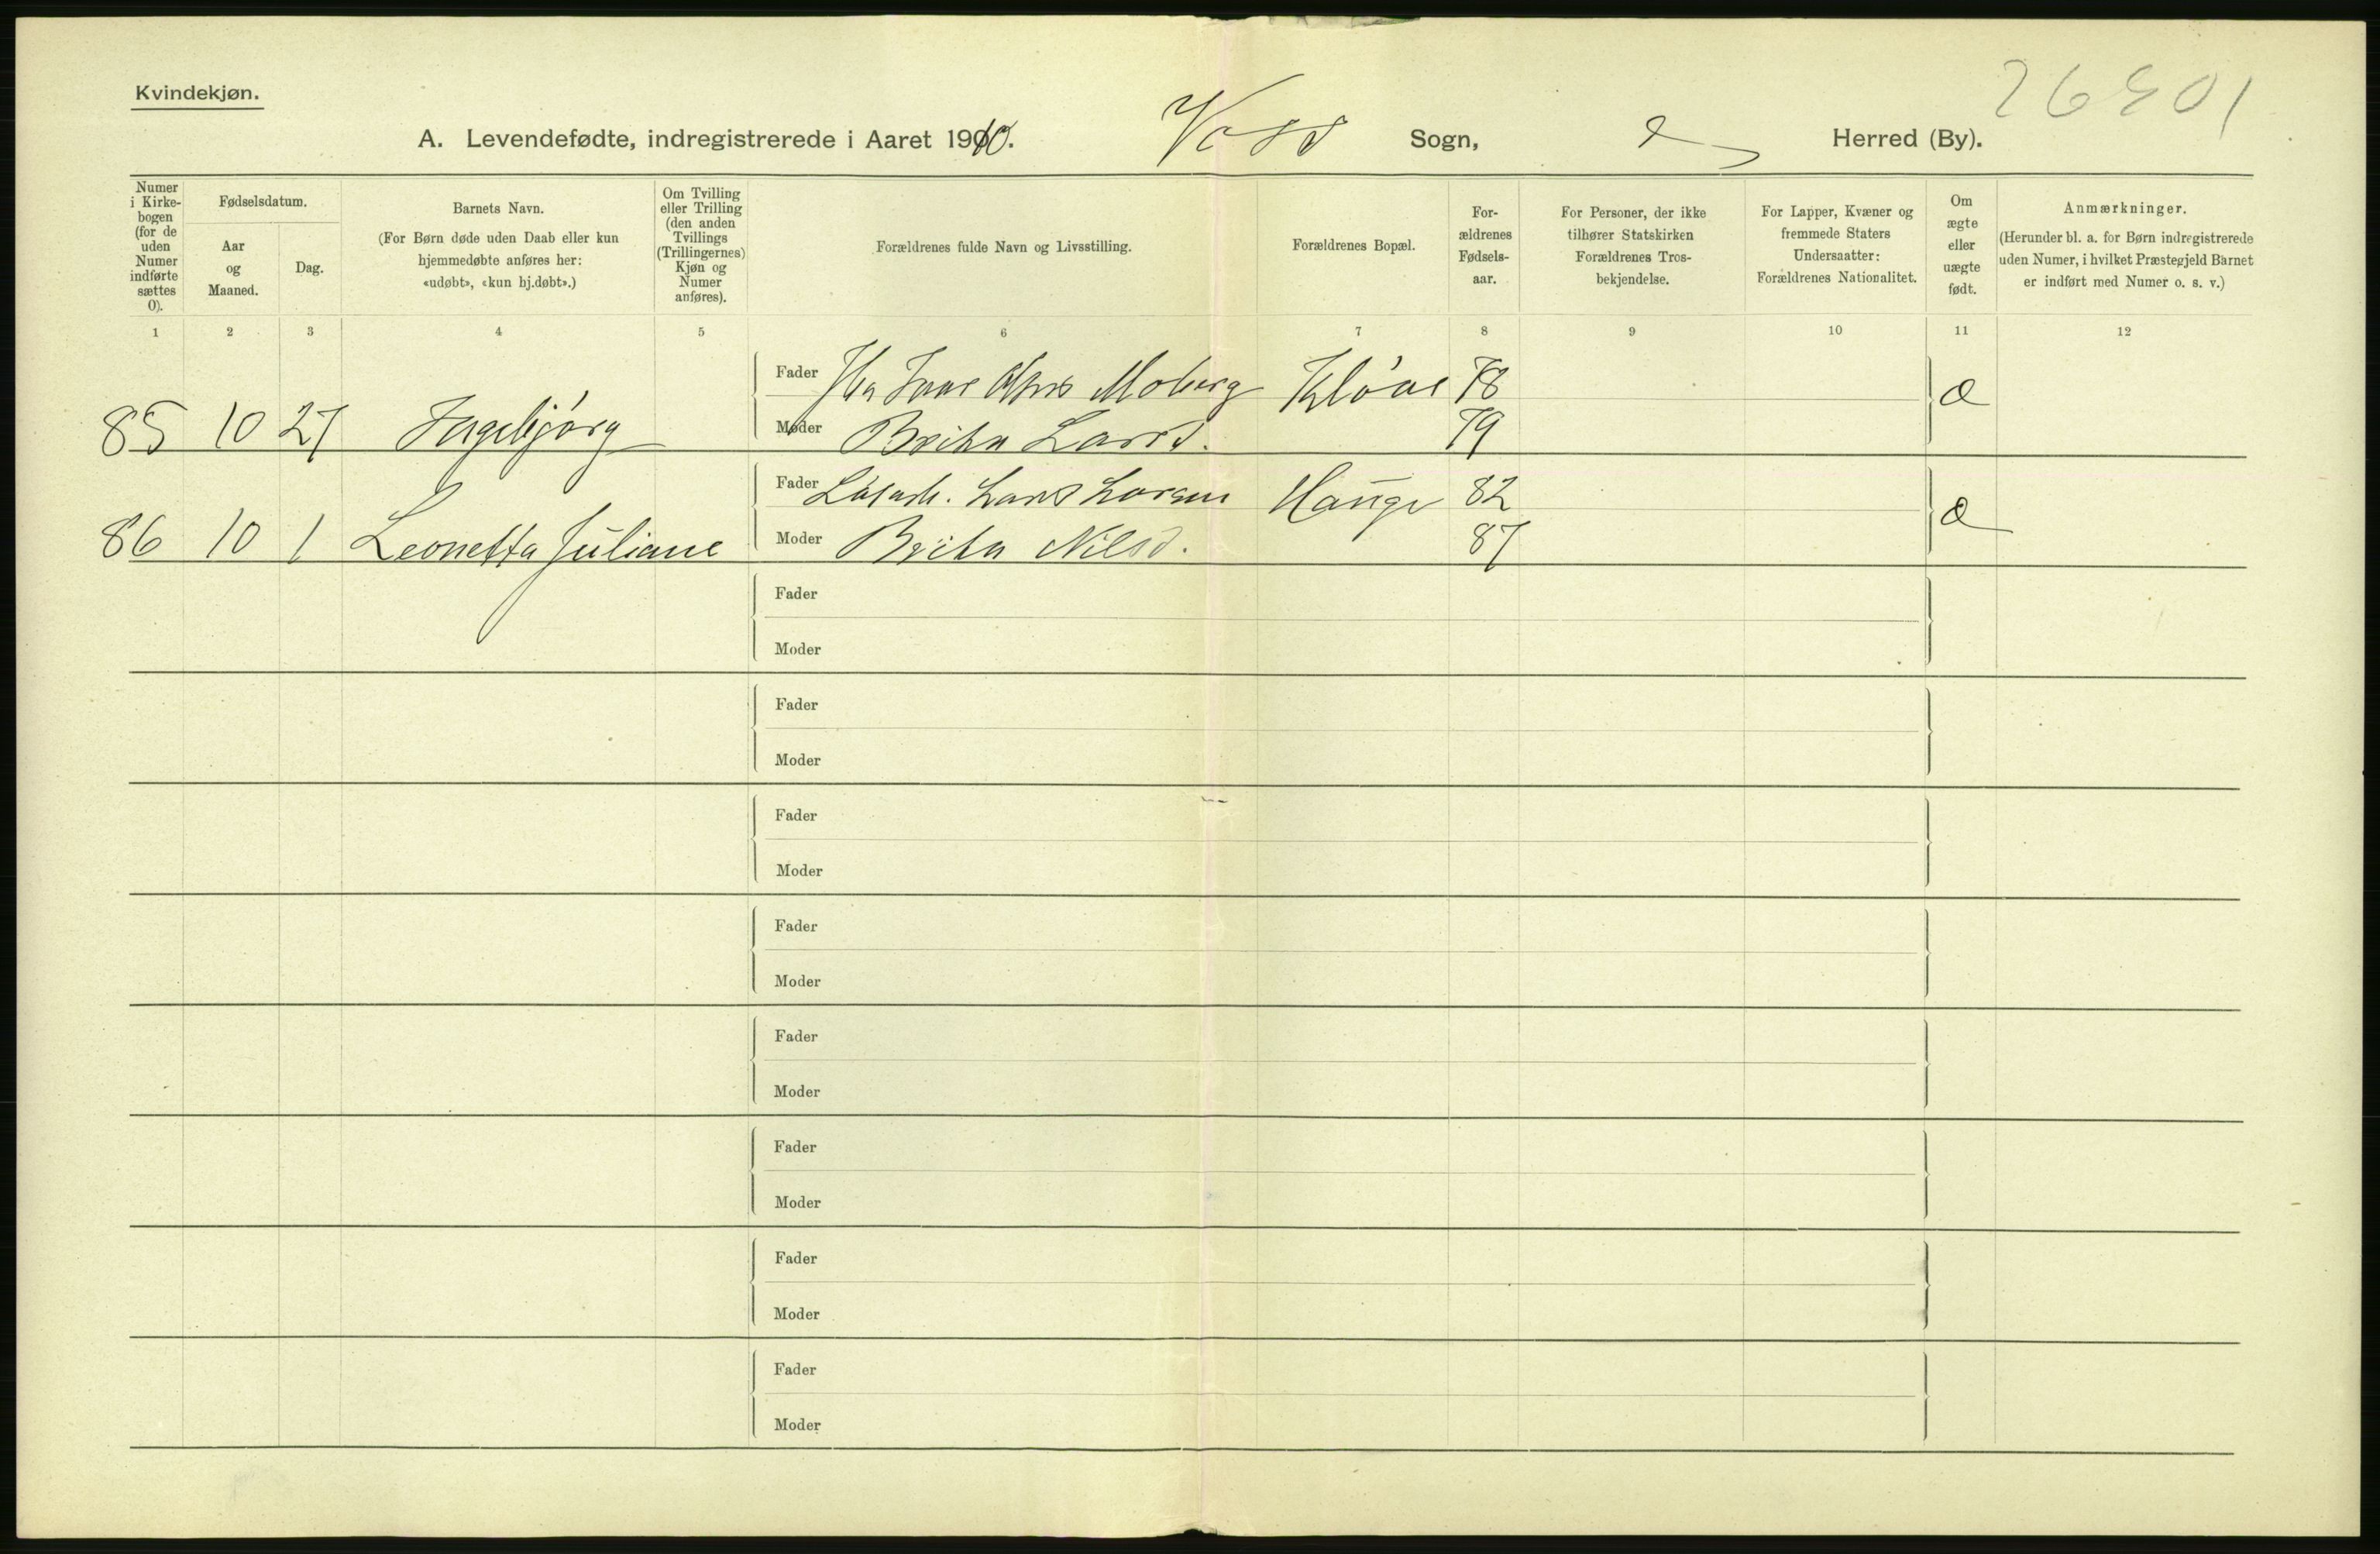 Kvindekjøn.
26501
A. Levendefødte, indregistrerede i Aaret 1910. Voss Sogn, Herred (By).
Numer i Kirkebogen (for de uden Numer indførte sættes 0).
Fødselsdatum.
Aar og Maaned.
Dag.
Barnets Navn.
(For Børn døde uden Daab eller kun hjemmedøbte anføres her: «udøbt», «kun hj.døbt».)
Om Tvilling eller Trilling (den anden Tvillings (Trillingernes) Kjøn og Numer anføres).
Forældrenes fulde Navn og Livsstilling.
Forældrenes Bopæl.
Forældrenes Fødselsaar.
For Personer, der ikke tilhører Statskirken Forældrenes Trosbekjendelse.
For Lapper, Kvæner og fremmede Staters Undersaatter: Forældrenes Nationalitet.
Om ægte eller uægte født.
Anmærkninger.
(Herunder bl. a. for Børn indregistrerede uden Numer, i hvilket Præstegjeld Barnet er indført med Numer o. s. v.)
1 2 3 4 5 6 7 8 9 10 11 12
Fader Ivar Moberg Kløve 78
85 10 27 Ingebjørg Moder Britha Larsd. 79 æ
Fader Lars Larsen Hauge 82
86 10 1 Leonetta Juliane Moder Britha Nilsd. 87 æ
Fader
Moder
Fader
Moder
Fader
Moder
Fader
Moder
Fader
Moder
Fader
Moder
Fader
Moder
Fader
Moder